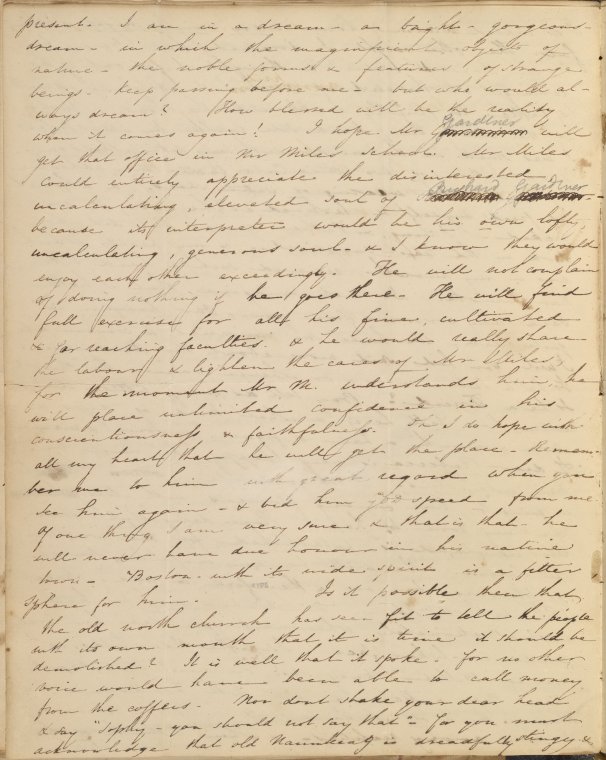 present. I am in a dream – a bright – gorgeous
dream – in which the magnificent objects of
nature – the noble forms & features of strange
beings keep passing before me – but who would al-
ways dream? How blessed will be the reality
when it comes again! I hope Mr Gardiner will
get that office in Mr Miles school. Mr Miles
could entirely appreciate the disinterested
uncalculating, elevated soul of Richard Gardiner
because its interpreter would be his own lofty,
uncalculating, generous soul – & I know they would
enjoy each other exceedingly. He will not complain
of doing nothing if he goes there. He will find
full exercise for all his fine, cultivated
& far reaching faculties. & he would really share
the labour & lighten the cares of Mr Miles,
for the moment Mr M. understands him, he
will place unlimited confidence in his
conscientiousness & faithfulness. I do hope with
all my heart that he will get the place – Remem-
ber me to him with great regard when you
see him again – & bid him God speed from me
Of one thing I am very sure & that is that he
will never have due honour in his native
town – Boston with its wide spirit is a fitter
sphere for him. Is it possible then that
the old north church has seen fit to tell the people
with its own mouth that it is time it should be
demolished? It is well that it spoke – for no other
voice would have been able to call money
from the coffers. Nor dont shake your dear head
& say "Sophy – you should not say that" – for you must
acknowledge that old Naumkeag is dreadfully stingy &